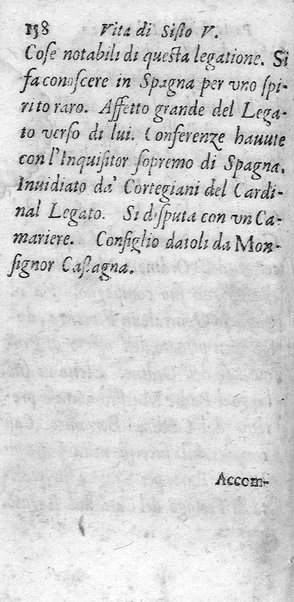 158 Vita di Sisto V.
Cose notabili di questa legatione. Si
fa conoscere in Spagna per vno spi-
rito raro. Affetto grande del Lega-
to verso di lui. Conferenze hauute
con l'Inquisitor sopremo di Spagna.
Inuidiato da' Cortegiani del Cardi-
nal Legato. Si disputa con vn Ca-
mariere. Consiglio datoli da Mon-
signor Castagna.
Accom-